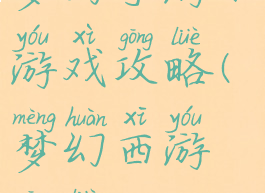 yóu xì gōng lüè
游戏攻略(
mèng huàn xī yóu
梦幻西游